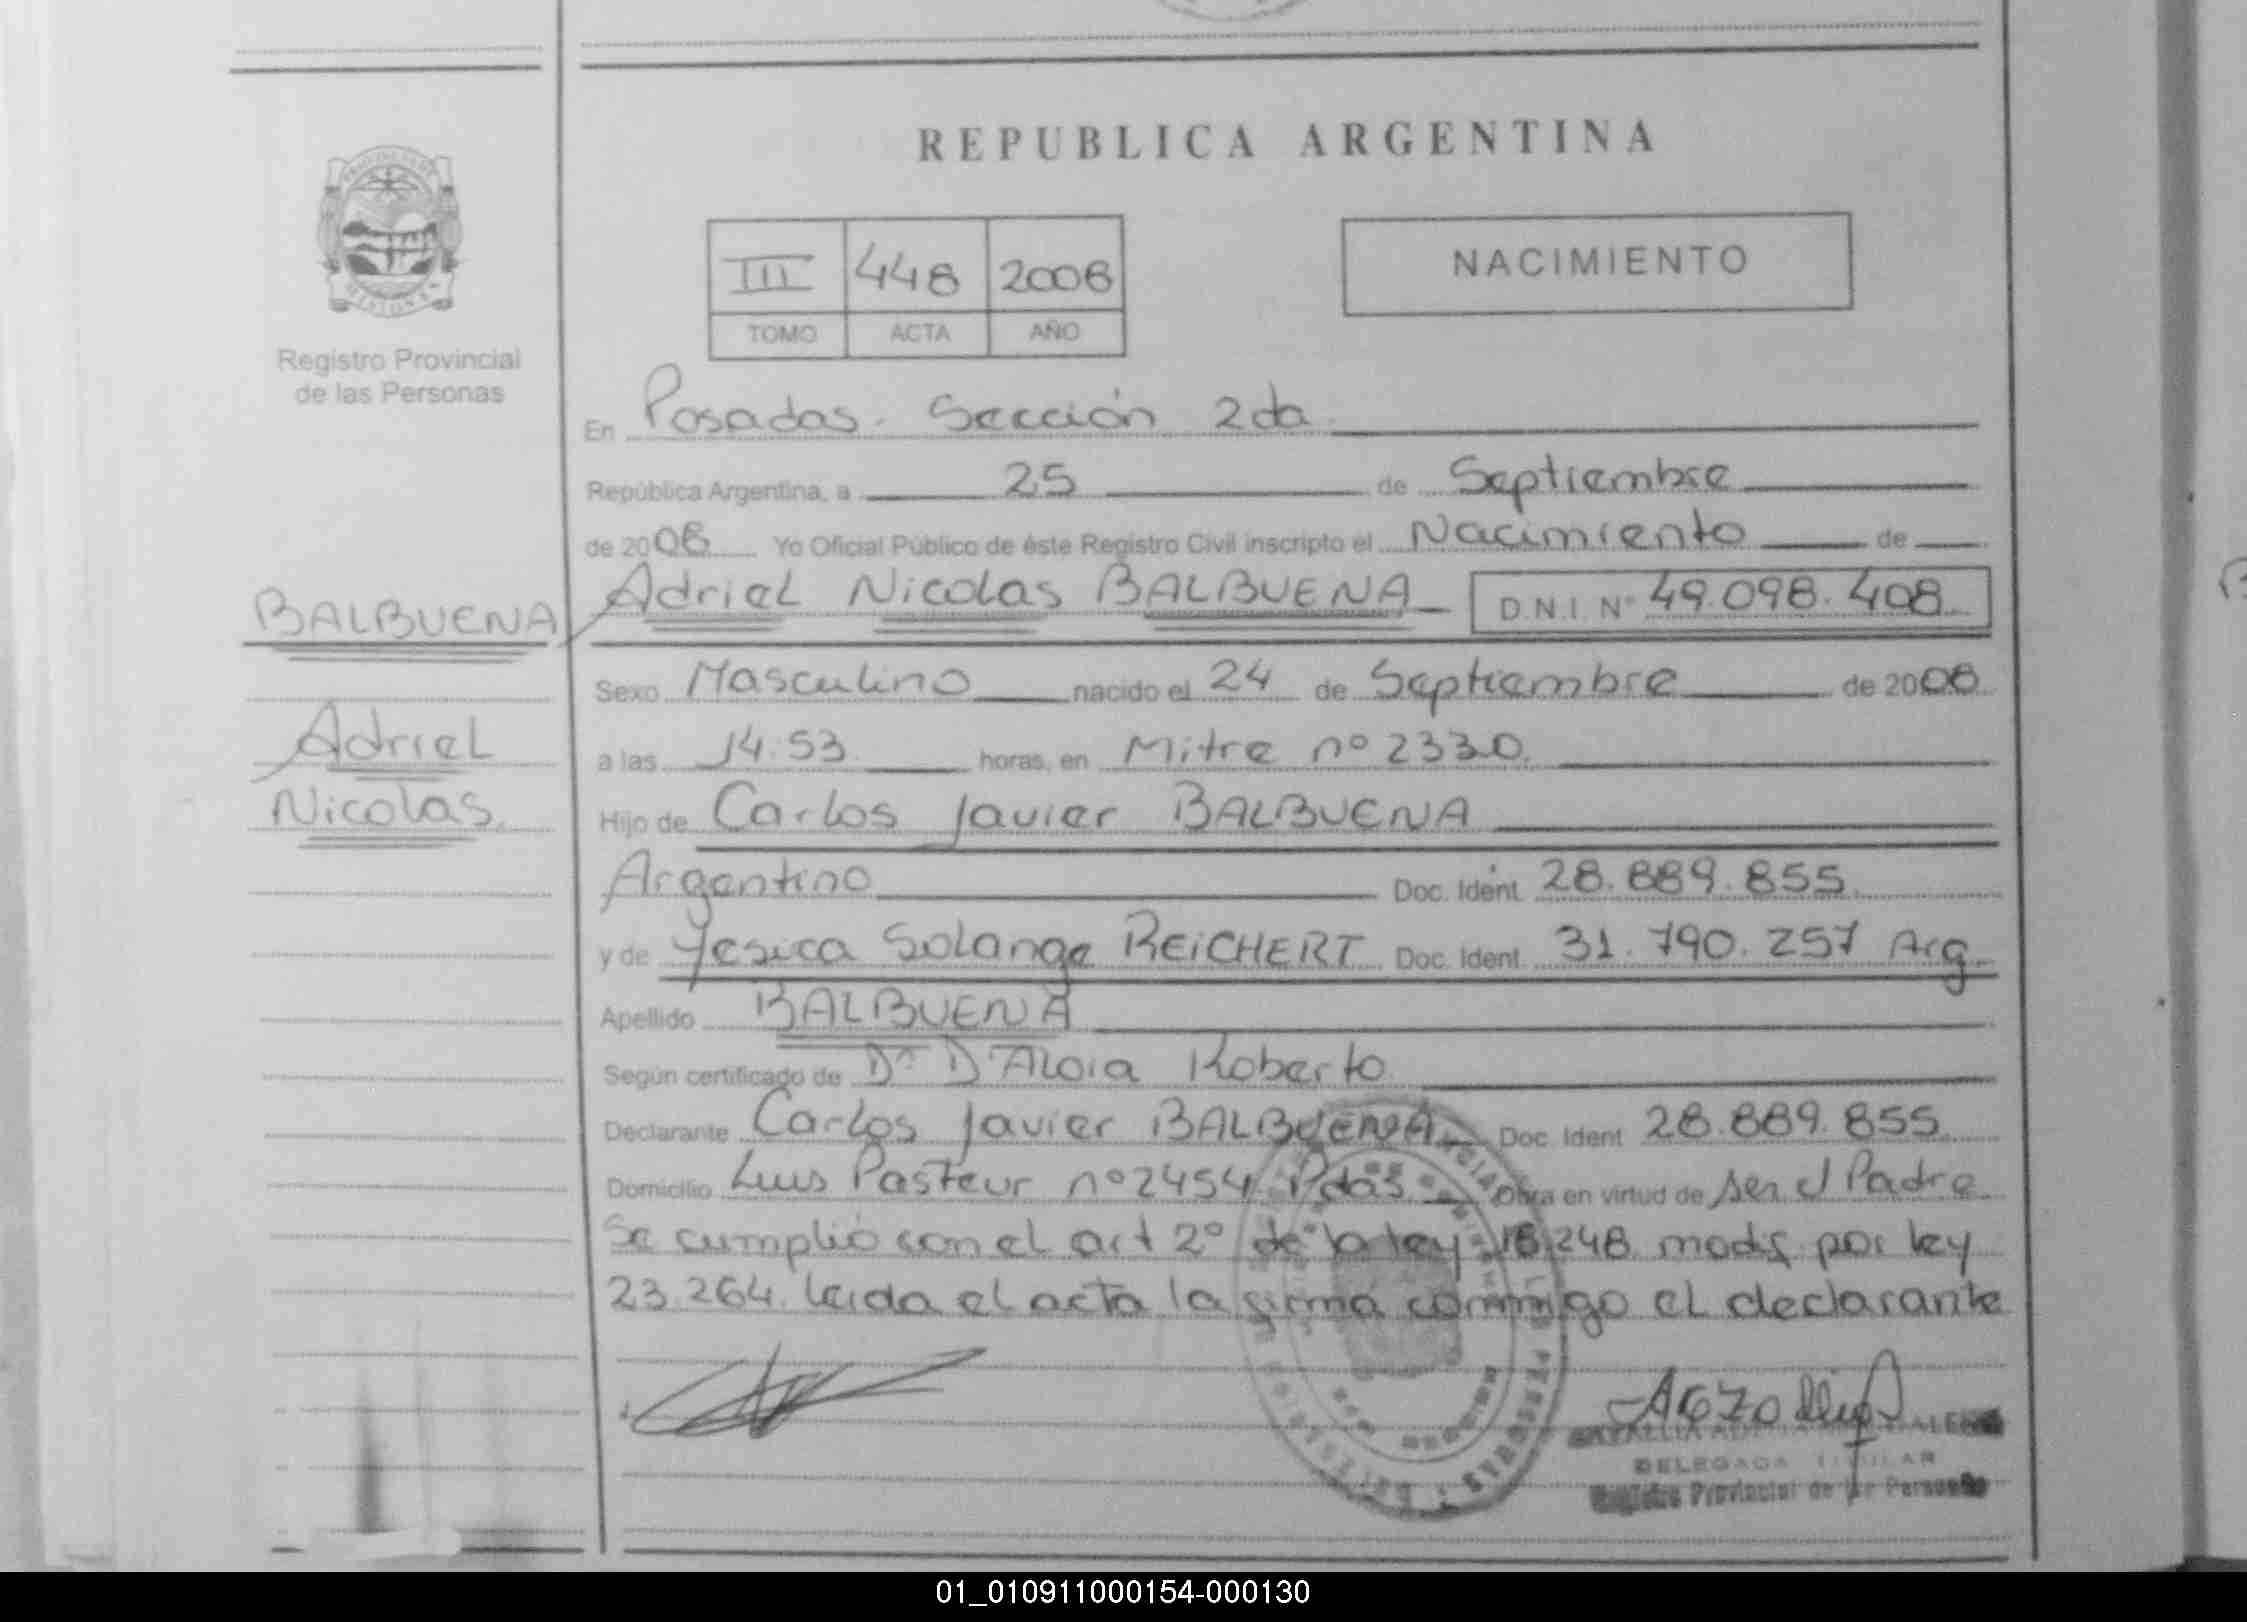 REPUBLICA ARGENTINA
PROVINCIA DE
MISIONES
Registro Provincial
de las Personas
III 448 2008
TOMO ACTA AÑO
NACIMIENTO
En Posadas. Sección 2da.
República Argentina, a 25 de Septiembre
de 2008 Yo Oficial Público de éste Registro Civil inscripto el Nacimiento de
BALBUENA
Adriel Nicolas BALBUENA D.N.I. Nº 49.098.408
Sexo Masculino nacido el 24 de Septiembre de 2008
Adriel
Nicolas.
a las 14:53 horas, en Mitre nº 2330.
Hijo de Carlos Javier BALBUENA
Argentino Doc. Ident 28.889.855.
y de Yesica Solange REICHERT Doc. Ident 31.790.257 Arg
Apellido BALBUENA
Según certificado de Dr D'Aloia Roberto
Declarante Carlos Javier BALBUENA Doc. Ident 28.889.855.
Domicilio Luis Pasteur nº2454 Pdas Obra en virtud de ser el Padre
Se cumplió con el art 2º de la ley 18.248 modif por ley
23.264. leida el acta la firma conmigo el declarante
DELEGADA TITULAR
Registro Provincial de las Personas
01_010911000154-000130